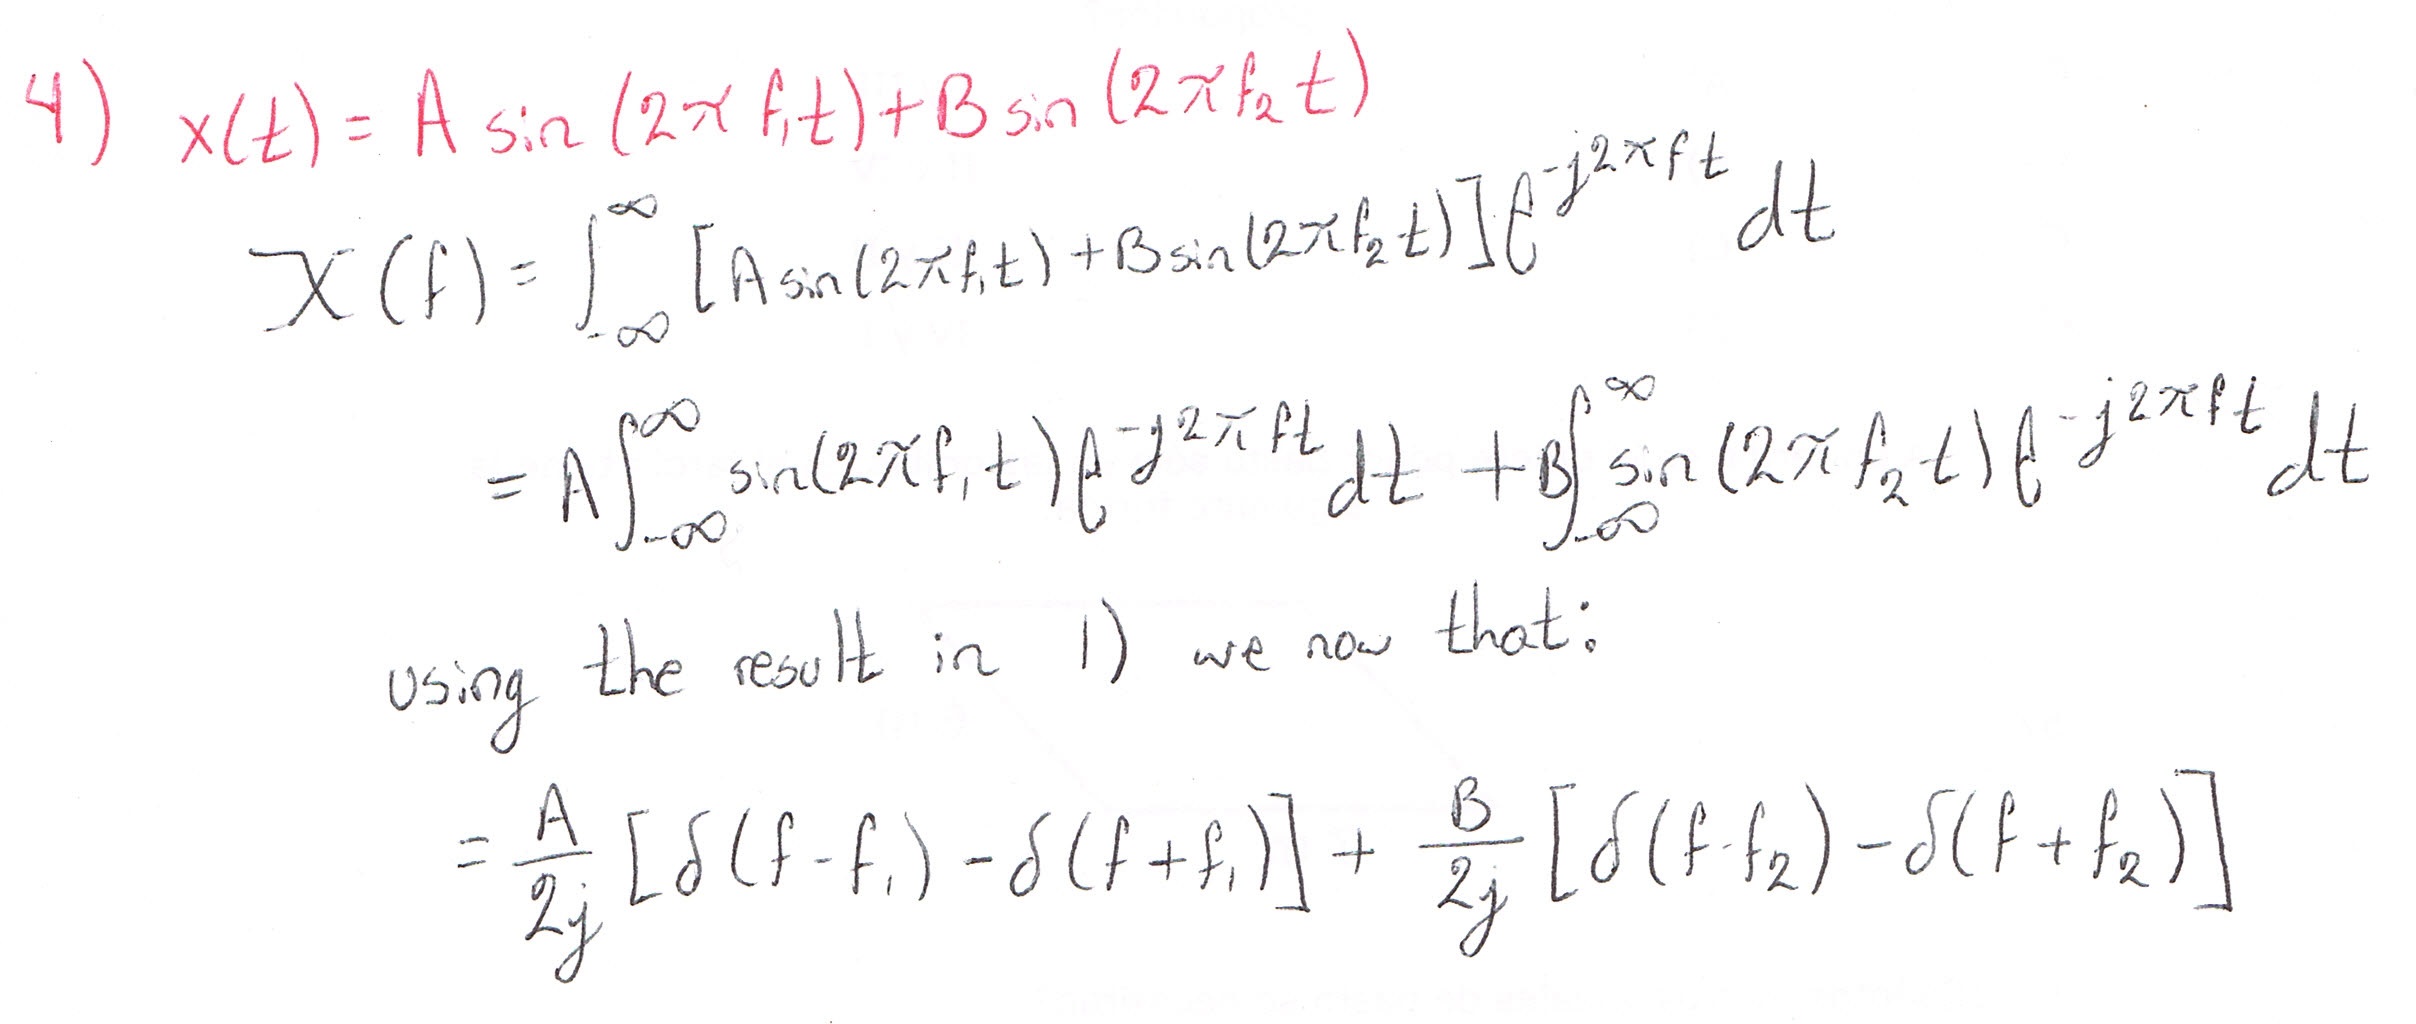 4) x(t) = A sin (2π f₁t) + B sin (2π f₂ t)
X(f) = ∫_{-∞}^{∞} [A sin(2π f₁ t) + B sin(2π f₂ t)] e^{-j2π f t} dt
= A ∫_{-∞}^{∞} sin(2π f₁ t) e^{-j2π f t} dt + B ∫_{-∞}^{∞} sin (2π f₂ t) e^{-j2π f t} dt
using the result in 1) we now that:
= A/2j [δ(f - f₁) - δ(f + f₁)] + B/2j [δ(f - f₂) - δ(f + f₂)]